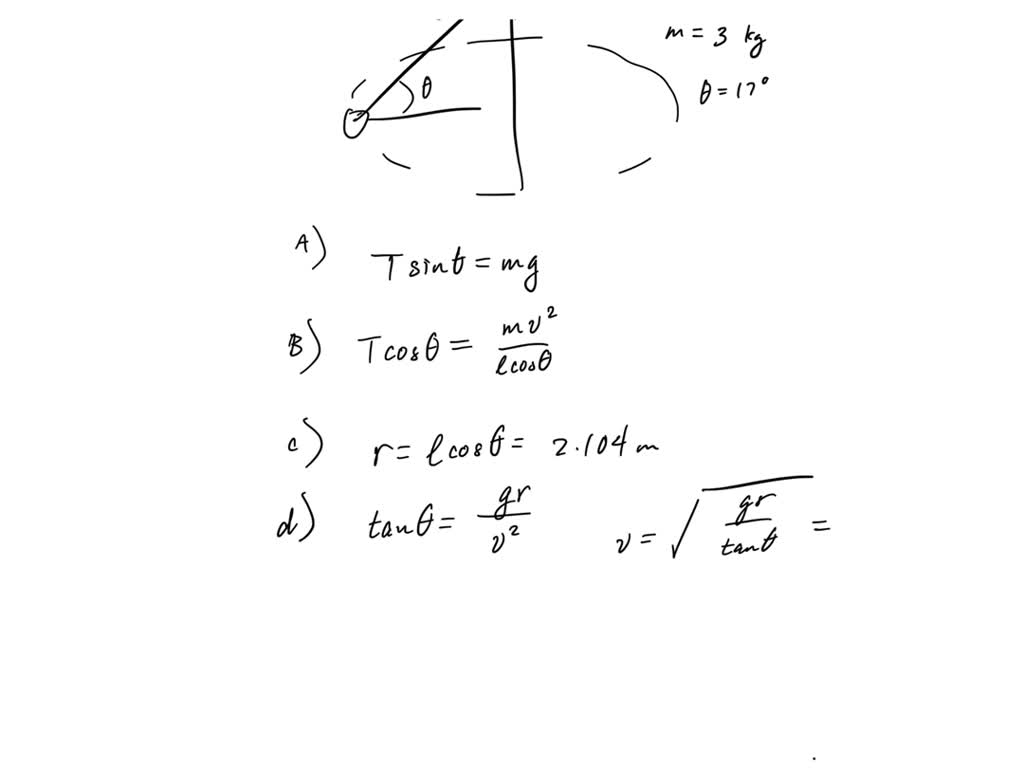 m = 3 kg
θ
θ = 17°
A) T sinθ = mg
B) T cosθ = mv² / l cosθ
c) r = l cosθ = 2.104 m
d) tanθ = gr / v² v = √(gr / tanθ) =